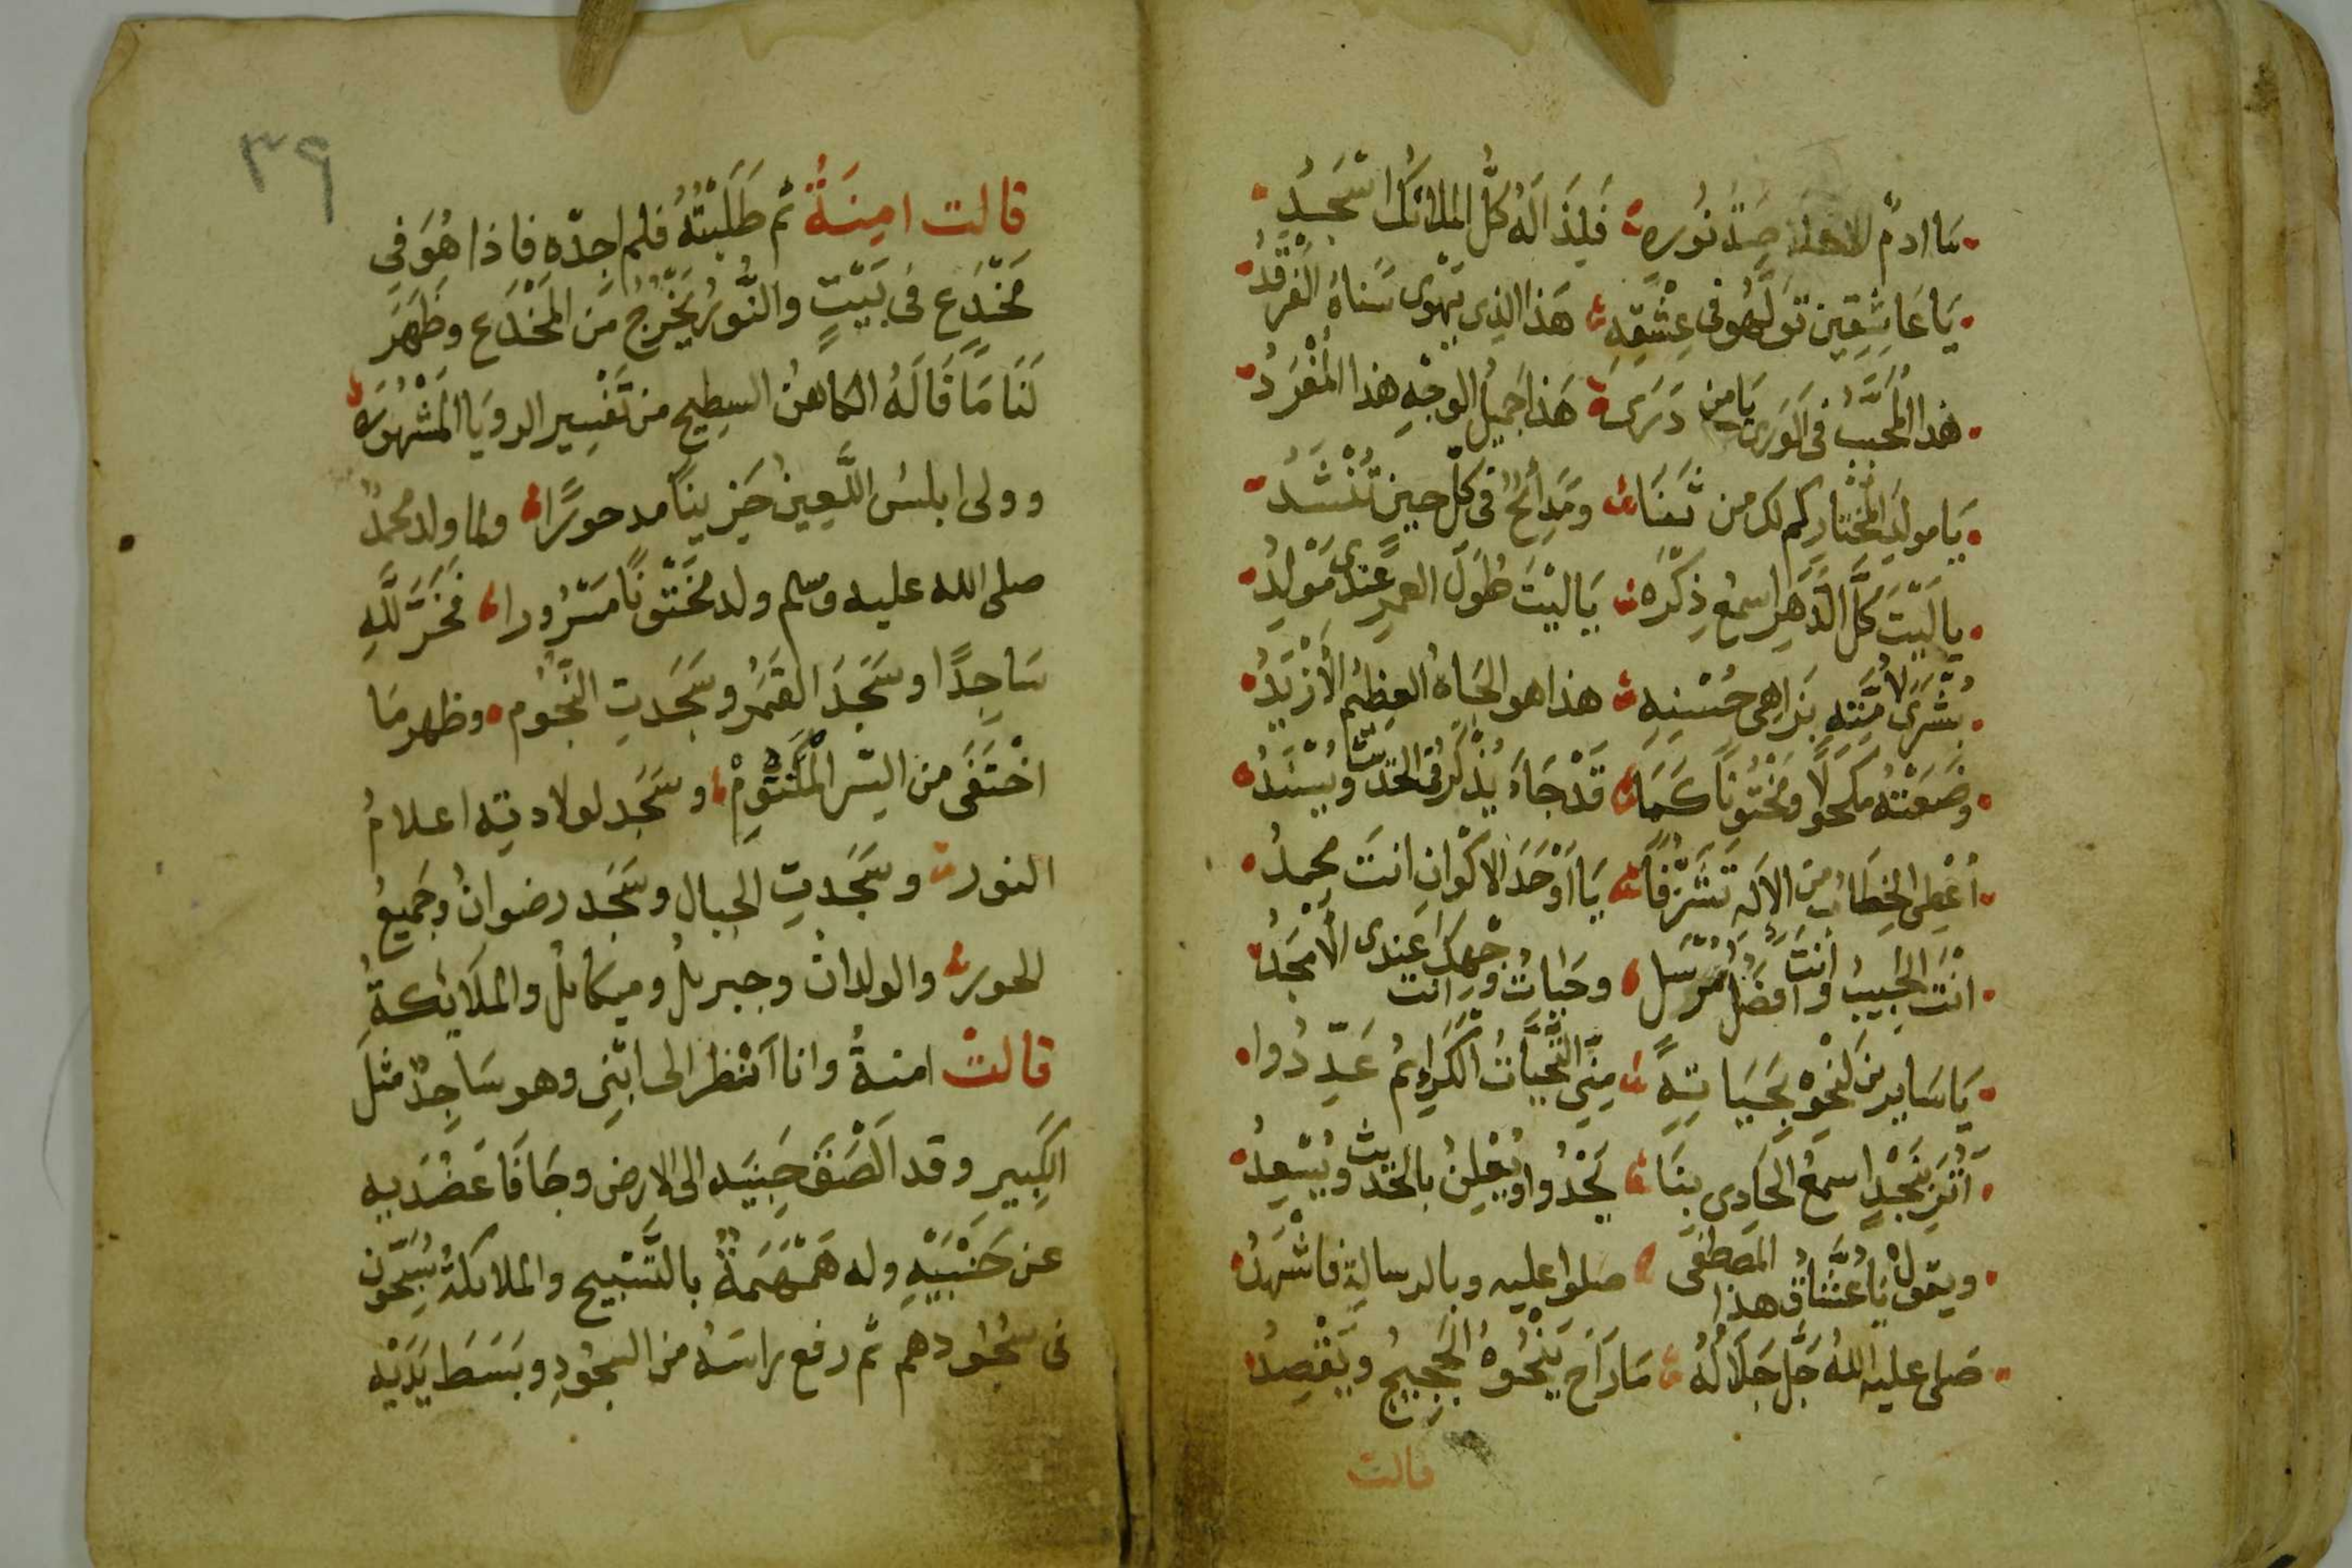 ساادم نوره فَلِذَ الَهُ كُلُّ الملائك اسْجُدِ
يَا عَاشِقِين تَوَلَّهُو فى عِشْقِهِ هَذا الذى يَهْوى سَناهُ الفَرْقَدُ
هذا المُحَبَّبُ فى الوَرى يَا من دَرى هَذا جَمِيلُ الوجْهِ هذا المُفْرَدُ
يَا مولد المُخْتَارِ كم لك من ثَنَا وَمَدائحٌ فى كلّ حِينٍ تُنْشَدُ
يا لَيْتَ كُلَّ الدَّهرِ اسمعُ ذِكْرَه يَا ليْتَ طُولَ العمرِ عِندى مَوْلِدُ
بُشْرَى لامِنَةٍ بزاهى حُسْنِهِ هذا هو الجَاهُ العظيم الأزْيَدُ
وضَعَتْهُ مكحولًا ومَخْتُونًا كَمَا قَدْ جَاءَ يُذْكَرُ فى الحَدِيثِ وَيُسْنَدُ
أُعْطِىَ الخِطَابُ مِن الالَهِ تَشَرُّفًا يَا أَوْحَدَ الاكْوانِ انتَ محمدُ
انْتَ الحَبِيبُ وانتَ افضَلُ مُرْسَل وحَيَاتُ وجْهِكَ انت عِندى الأَمْجَدُ
يَا سَايرين لنحوِه بحَيَاتِهِ مِنِّى التَّحِيَّاتُ الكَرائِمُ عَدِّدُوا
اتُرَى بنَجْدٍ اسمَعُ الحَادِى بِنَا يَحْدُوا ويُعْلِنُ بالحَدِيثِ ويُسْعِدُ
ويقولُ يَا عُشَّاقُ هذا المصطفى صلوا عليه وبالرسالة فاشْهَدُ
صَلى عليه الله جَلَّ جَلَالُهُ مَا رَاحَ يَنْحُوهُ الحَجِيجُ ويَقْصِدُ
قالت
٣٩
قالت امِنَةُ ثم طَلَبْتُهُ فلم اجدّه فاذا هُوَ فِي
مَخْدَعٍ فى بَيْتٍ والنُّورُ يَخْرُجُ مَن المَخْدَعِ وظَهَرَ
لَنَا مَا قَالَهُ الكاهنُ السطيح من تَفْسِير الرويَا المَشْهُورَه
وولى ابليسُ اللَّعِينُ حَزِينًا مدحورًا ولما ولد محمدٌ
صلى الله عليه وسلم ولد مَخْتُونًا مَسْرُورا فَخَرَّ لِلَّهِ
سَاجِدًا وسَجَدَ القَمَرُ وسَجَدتِ النُّجُوم وظهر مَا
اخْتَفَى من السِّر المَكْتُومْ وسَجَد لولادته اعلامُ
النور وسَجَدتِ الجبال وسَجَد رضوانُ وجَمِيعُ
الحور والولدان وجبريلُ وميكائلُ والملَائِكةُ
قالتْ امنةُ وانا اَنْظر الى ابْنِى وهو سَاجِدٌ مثل
الكَبِيرِ وقد الْصَقَ جَبِينَه الى الارض وجَافَا عَضُدَيهِ
عن جَنْبَيْهِ وله هَمْهَمَةٌ بالتَّسْبِيحِ والملائكةُ يُسَبِّحُون
فى سُجُودهم ثم رفع راسَهُ من السجُودِ وبَسَطَ يَدَيْه